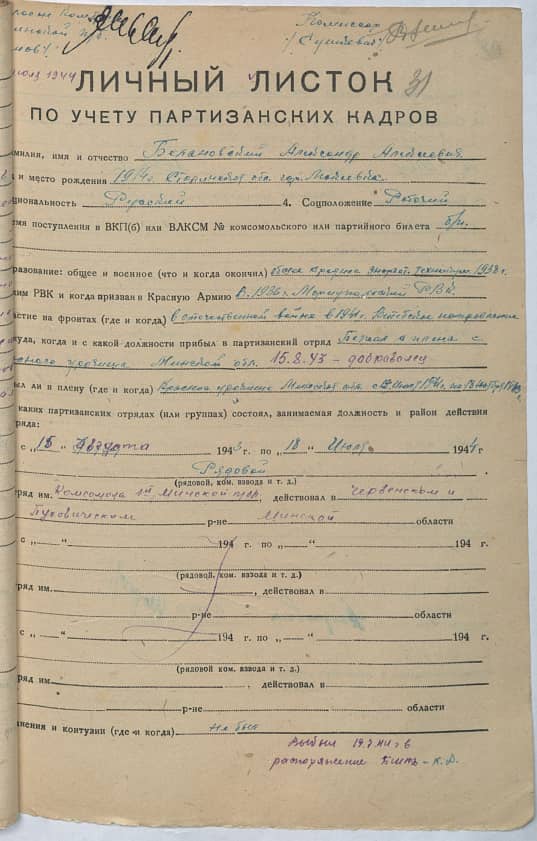 Комиссар
/Сушкевич/
июля 1944
31
ЛИЧНЫЙ ЛИСТОК
ПО УЧЕТУ ПАРТИЗАНСКИХ КАДРОВ
амилия, имя и отчество Александр Алексеевич
и место рождения 1914 г. обл. гор.
циональность Русский 4. Соцположение Рабочий
емя поступления в ВКП(б) или ВЛКСМ № комсомольского или партийного билета б/п.
бразование: общее и военное (что и когда окончил) 1938 г.
ким РВК и когда призван в Красную Армию В 1936 г. РВК.
астие на фронтах (где и когда) В отечественной войне в 1941 г. Витебское направление
куда, когда и с какой должности прибыл в партизанский отряд Бежал из плена с
урочища Минской обл. 15.8.43 – доброволец
ыл ли в плену (где и когда) Красное урочище Минской обл. с
каких партизанских отрядах (или группах) состоял, занимаемая должность и район действия
ряда:
с „ 15 “ Августа 1943 г. по „ 18 “ Июля 1944 г.
Рядовой
(рядовой, ком. взвода и т. д.)
ряд им. Комсомола 1ой Минской п/бр., действовал в Червенском и
Пуховическом р-не Минской области
с „ “ 194 г. по „ “ 194 г.
(рядовой, ком. взвода и т. д.)
ряд им. , действовал в
р-не области
с „ “ 194 г. по „ “ 194 г.
(рядовой ком. взвода и т. д.)
ряд им. , действовал в
р-не области
нения и контузии (где и когда) не был
Выбыл 19.7.44 г в
распоряжение БШПД – К.Д.